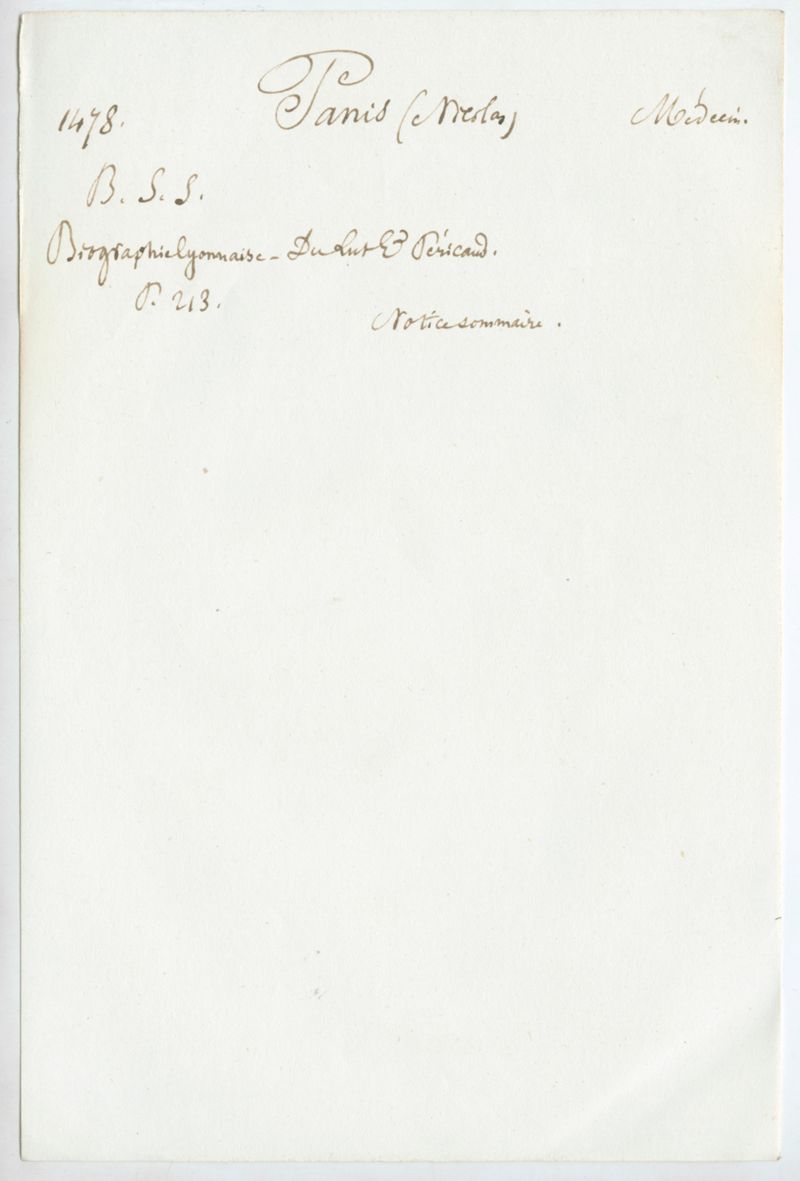 1478. Panis (Nicolas) Médecin.
B. S. S.
Biographie lyonnaise - Du Lut & Péricaud.
P. 213.
Notice sommaire.